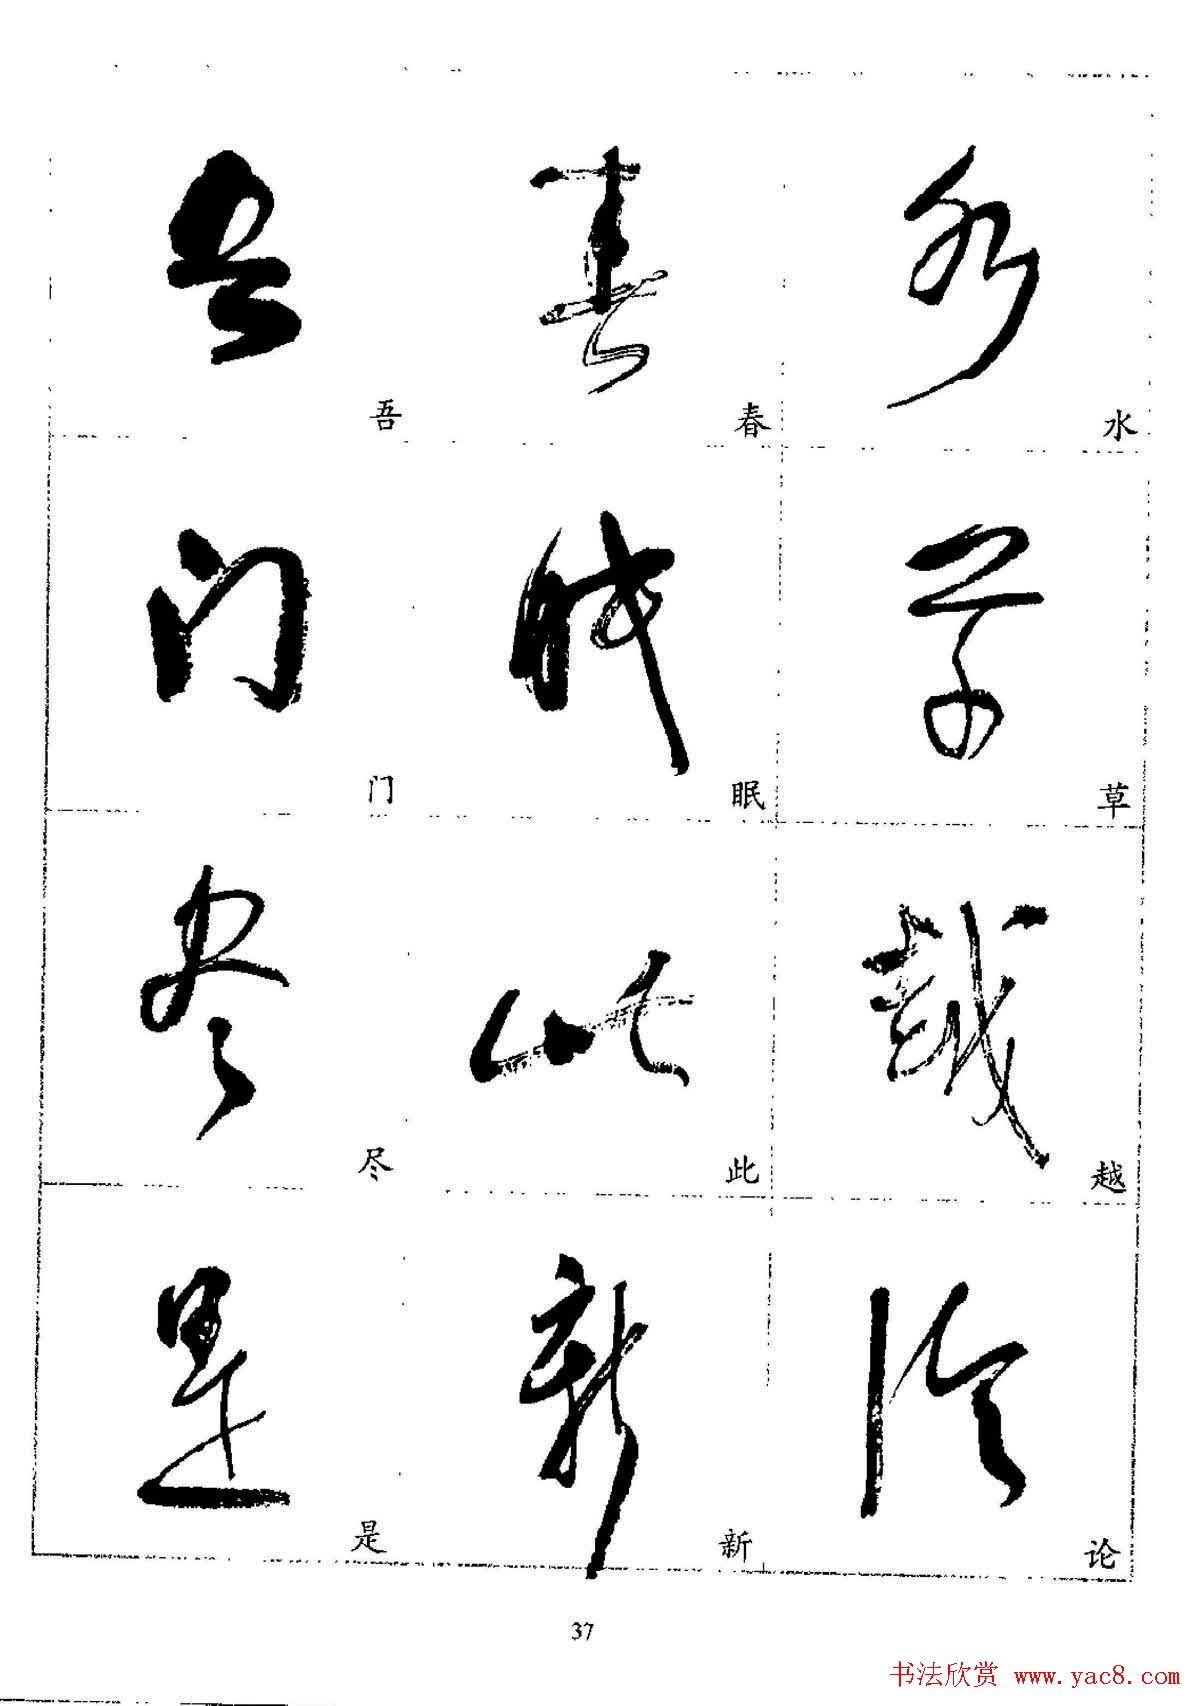 吾 春 水
门 眠 草
尽 此 越
是 新 论
37
书法欣赏 www.yac8.com